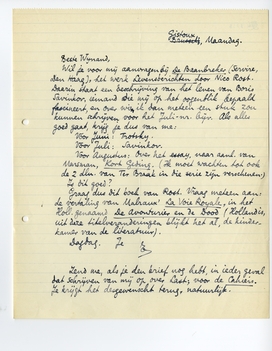 Gistoux,
Maandag.
Beste Wijnand,
Wil je voor mij aanvragen bij De Baanbreker (Servire,
Den Haag), het werk Levensberichten door Nico Rost.
Daarin staat een beschrijving van het leven van Boris
Savinkov, iemand die mij op het oogenblik bepaald
fascineert, en over wie ik dan meteen een stuk zou
kunnen schrijven voor het Juli-nr. bijv. Als alles
goed gaat krijg je dus van me:
Voor Juni: Trotsky.
Voor Juli: Savinkov.
Voor Augustus: Het essay, waar aan
(ik moet wachten tot ook
de 2 dln. van Ter Braak in die serie zijn verschenen)
Is dit goed?
Graag dus dit boek van Rost. Vraag meteen aan:
de vertaling van Malraux' La Voie Royale, in het
Holl. genaamd De Avonturier en de Dood (Hollandia,
uit deze titelveranderingen blijkt het al, de kinder-
kamer van de literatuur).
Dagdag. Je
E
Zend me, als je den brief nog hebt, in ieder geval
dat schrijven van mij op over Last, voor de Cahiers.
Je krijgt het desgewenscht terug, natuurlijk.